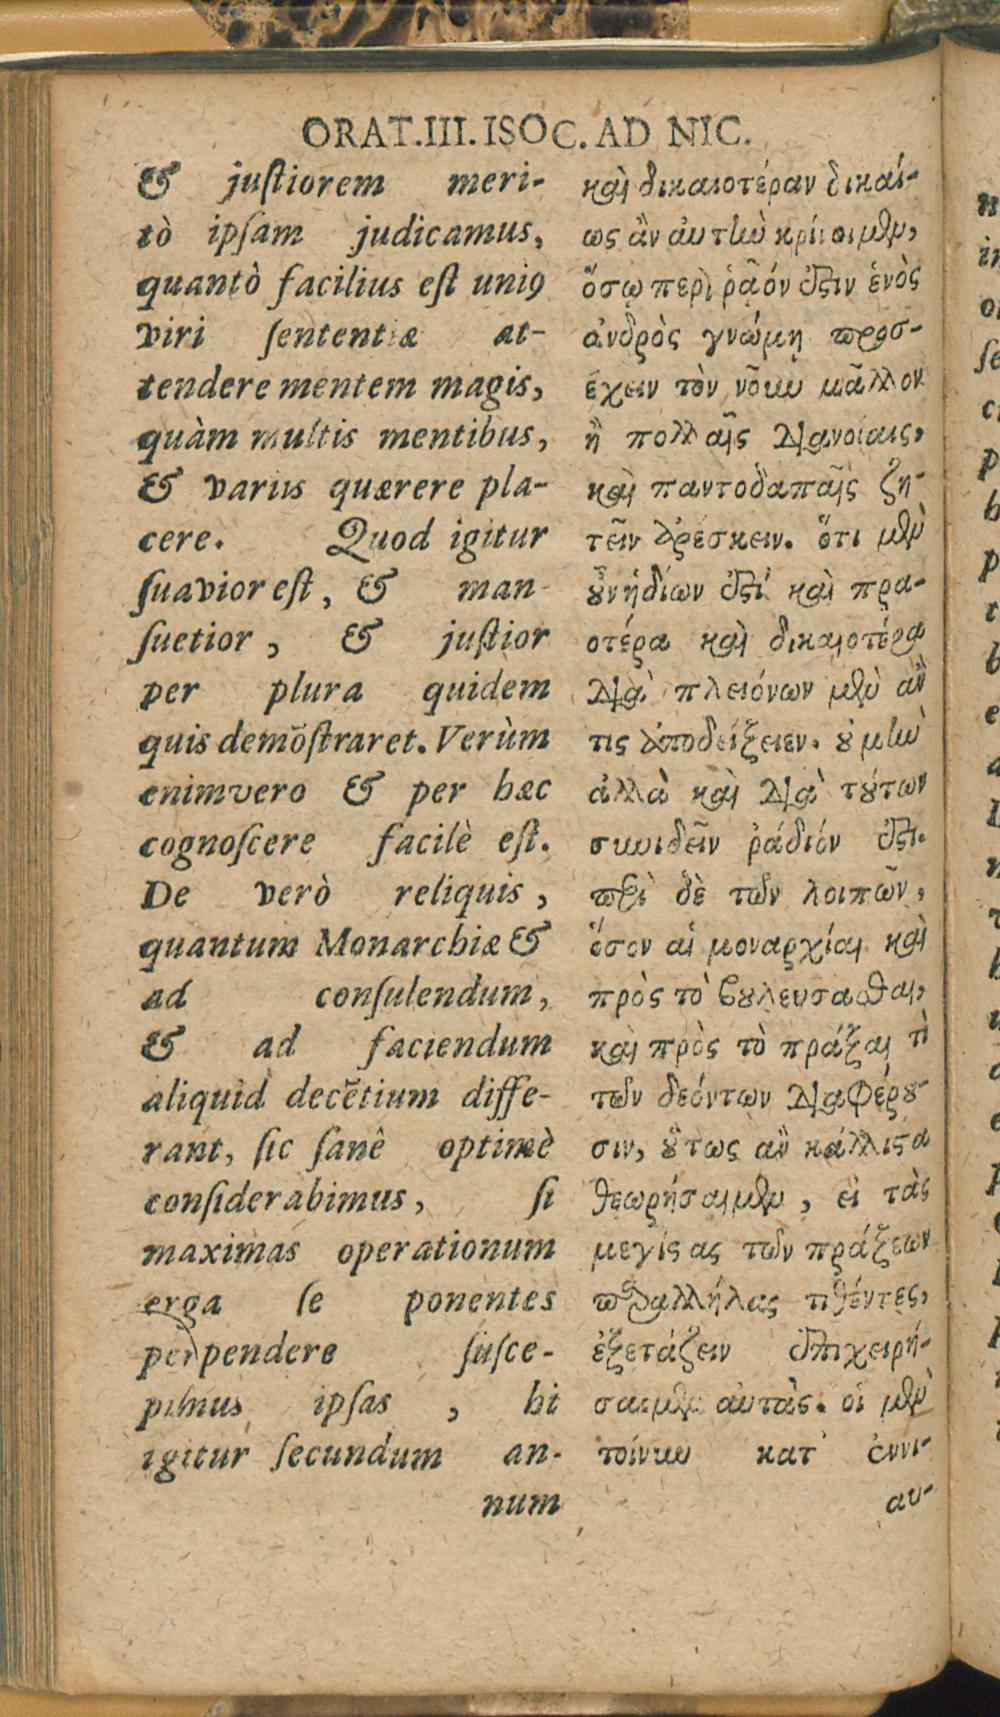 ORAT.III.ISOC. AD NIC.
& juſtiorem meri-
tò ipſam judicamus,
quantò facilius eſt uniꝰ
viri ſententiæ at-
tendere mentem magis,
quàm multis mentibus,
& variis quærere pla-
cere. Quod igitur
ſuavior eſt, & man-
ſuetior, & juſtior
per plura quidem
quis demõſtraret. Verùm
enimvero & per hæc
cognoſcere facilè eſt.
De verò reliquis,
quantum Monarchiæ &
ad conſulendum,
& ad faciendum
aliquid decẽtium diffe-
rant, ſic ſanè optimè
conſiderabimus, ſi
maximas operationum
erga ſe ponentes
perpendere ſuſce-
pimus ipſas, hi
igitur ſecundum an-
num
καὶ δικαιοτέραν δικαί-
ως ἂν αὐτὴν κρίνοιμεν,
ὅσῳ περὶ ῥᾷόν ἐστιν ἑνὸς
ἀνδρὸς γνώμῃ προσ-
έχειν τὸν νοῦν μᾶλλον
ἢ πολλαῖς διανοίαις,
καὶ παντοδαπαῖς ζη-
τεῖν ἀρέσκειν. ὅτι μὲν
οὖν ἡδίων ἐστὶ καὶ πρα-
οτέρα καὶ δικαιοτέρα
διὰ πλειόνων μὲν ἄν
τις ἀποδείξειεν. οὐ μὴν
ἀλλὰ καὶ διὰ τούτων
συνιδεῖν ῥάδιόν ἐστι.
περὶ δὲ τῶν λοιπῶν,
ὅσον αἱ μοναρχίαι καὶ
πρὸς τὸ βουλεύσασθαι,
καὶ πρὸς τὸ πράξαι τὶ
τῶν δεόντων διαφέρου-
σιν, οὕτως ἂν κάλλιστα
θεωρήσαιμεν, εἰ τὰς
μεγίστας τῶν πράξεων
παραλλήλας τιθέντες,
ἐξετάζειν ἐπιχειρή-
σαιμεν αὐτὰς. οἱ μὲν
τοίνυν κατ' ἐνι-
αυ-